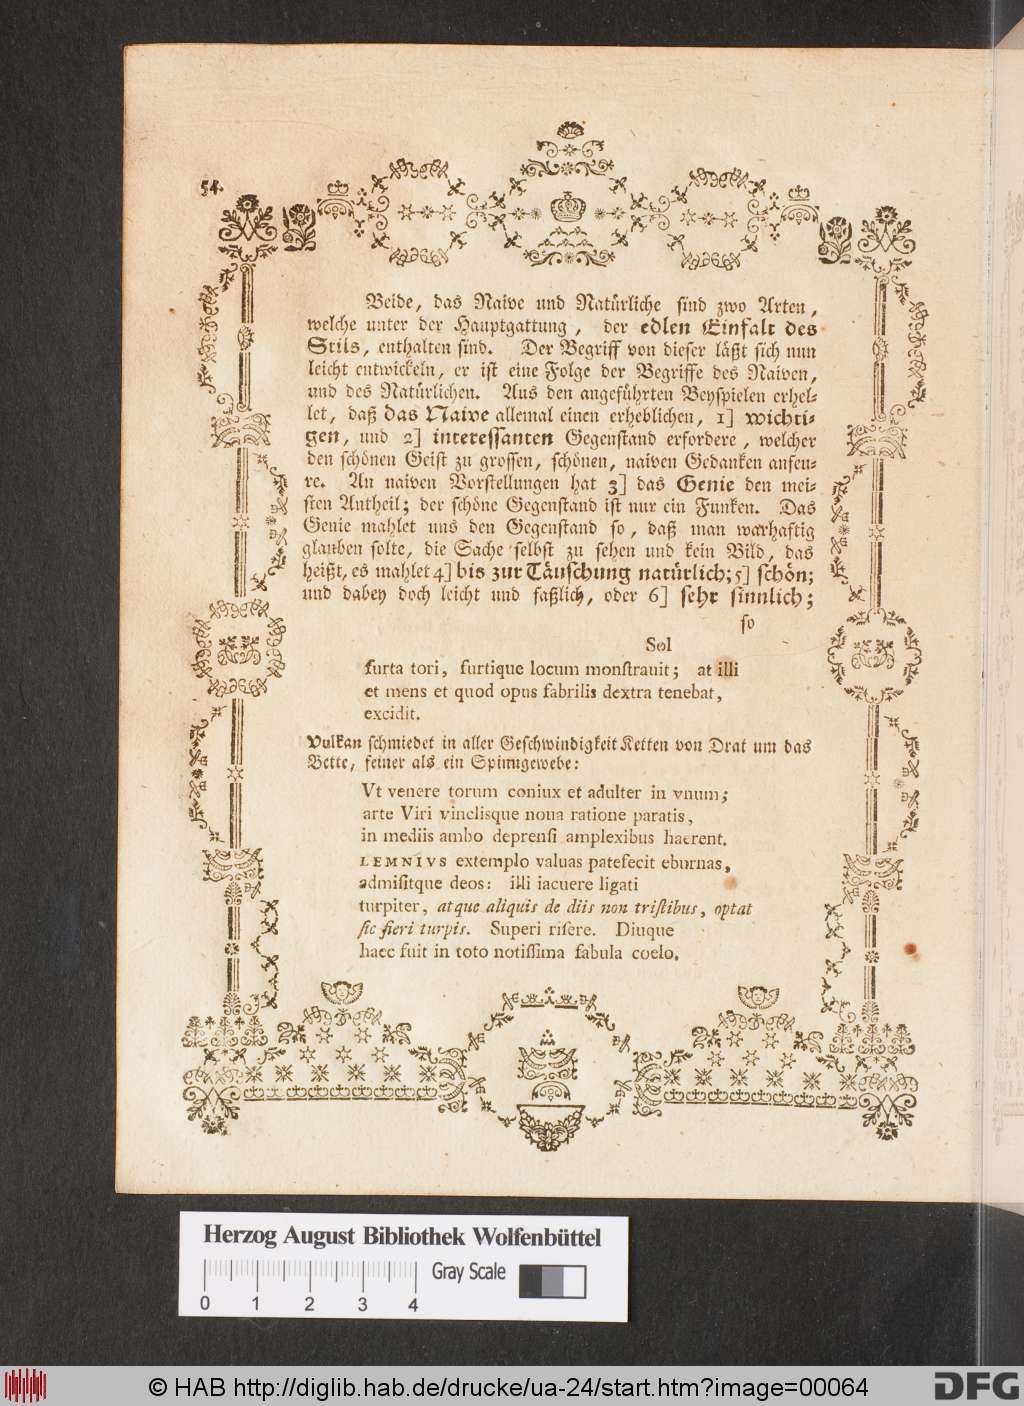 54.
Beide, das Naive und Natürliche sind zwo Arten,
welche unter der Hauptgattung, der edlen Einfalt des
Stils, enthalten sind. Der Begriff von dieser läßt sich nun
leicht entwickeln, er ist eine Folge der Begriffe des Naiven,
und des Natürlichen. Aus den angeführten Beyspielen erhel-
let, daß das Naive allemal einen erheblichen, 1] wichti-
gen, und 2] interessanten Gegenstand erfordere, welcher
den schönen Geist zu grossen, schönen, naiven Gedanken anfeu-
re. An naiven Vorstellungen hat 3] das Genie den mei-
sten Antheil; der schöne Gegenstand ist nur ein Funken. Das
Genie mahlet uns den Gegenstand so, daß man warhaftig
glauben solte, die Sache selbst zu sehen und kein Bild, das
heißt, es mahlet 4] bis zur Täuschung natürlich; 5] schön;
und dabey doch leicht und faßlich, oder 6] sehr sinnlich;
so
Sol
furta tori, furtique locum monſtrauit; at illi
et mens et quod opus fabrilis dextra tenebat,
excidit.
Vulkan schmiedet in aller Geschwindigkeit Ketten von Drat um das
Bette, feiner als ein Spinngewebe:
Vt venere torum coniux et adulter in vnum;
arte Viri vinclisque noua ratione paratis,
in mediis ambo deprenſi amplexibus haerent.
LEMNIVS extemplo valuas patefecit eburnas,
admiſitque deos: illi iacuere ligati
turpiter, atque aliquis de diis non triſtibus, optat
ſic fieri turpis. Superi riſere. Diuque
haec fuit in toto notiſſima fabula coelo.
Herzog August Bibliothek Wolfenbüttel
Gray Scale
0 1 2 3 4
© HAB http://diglib.hab.de/drucke/ua-24/start.htm?image=00064
DFG